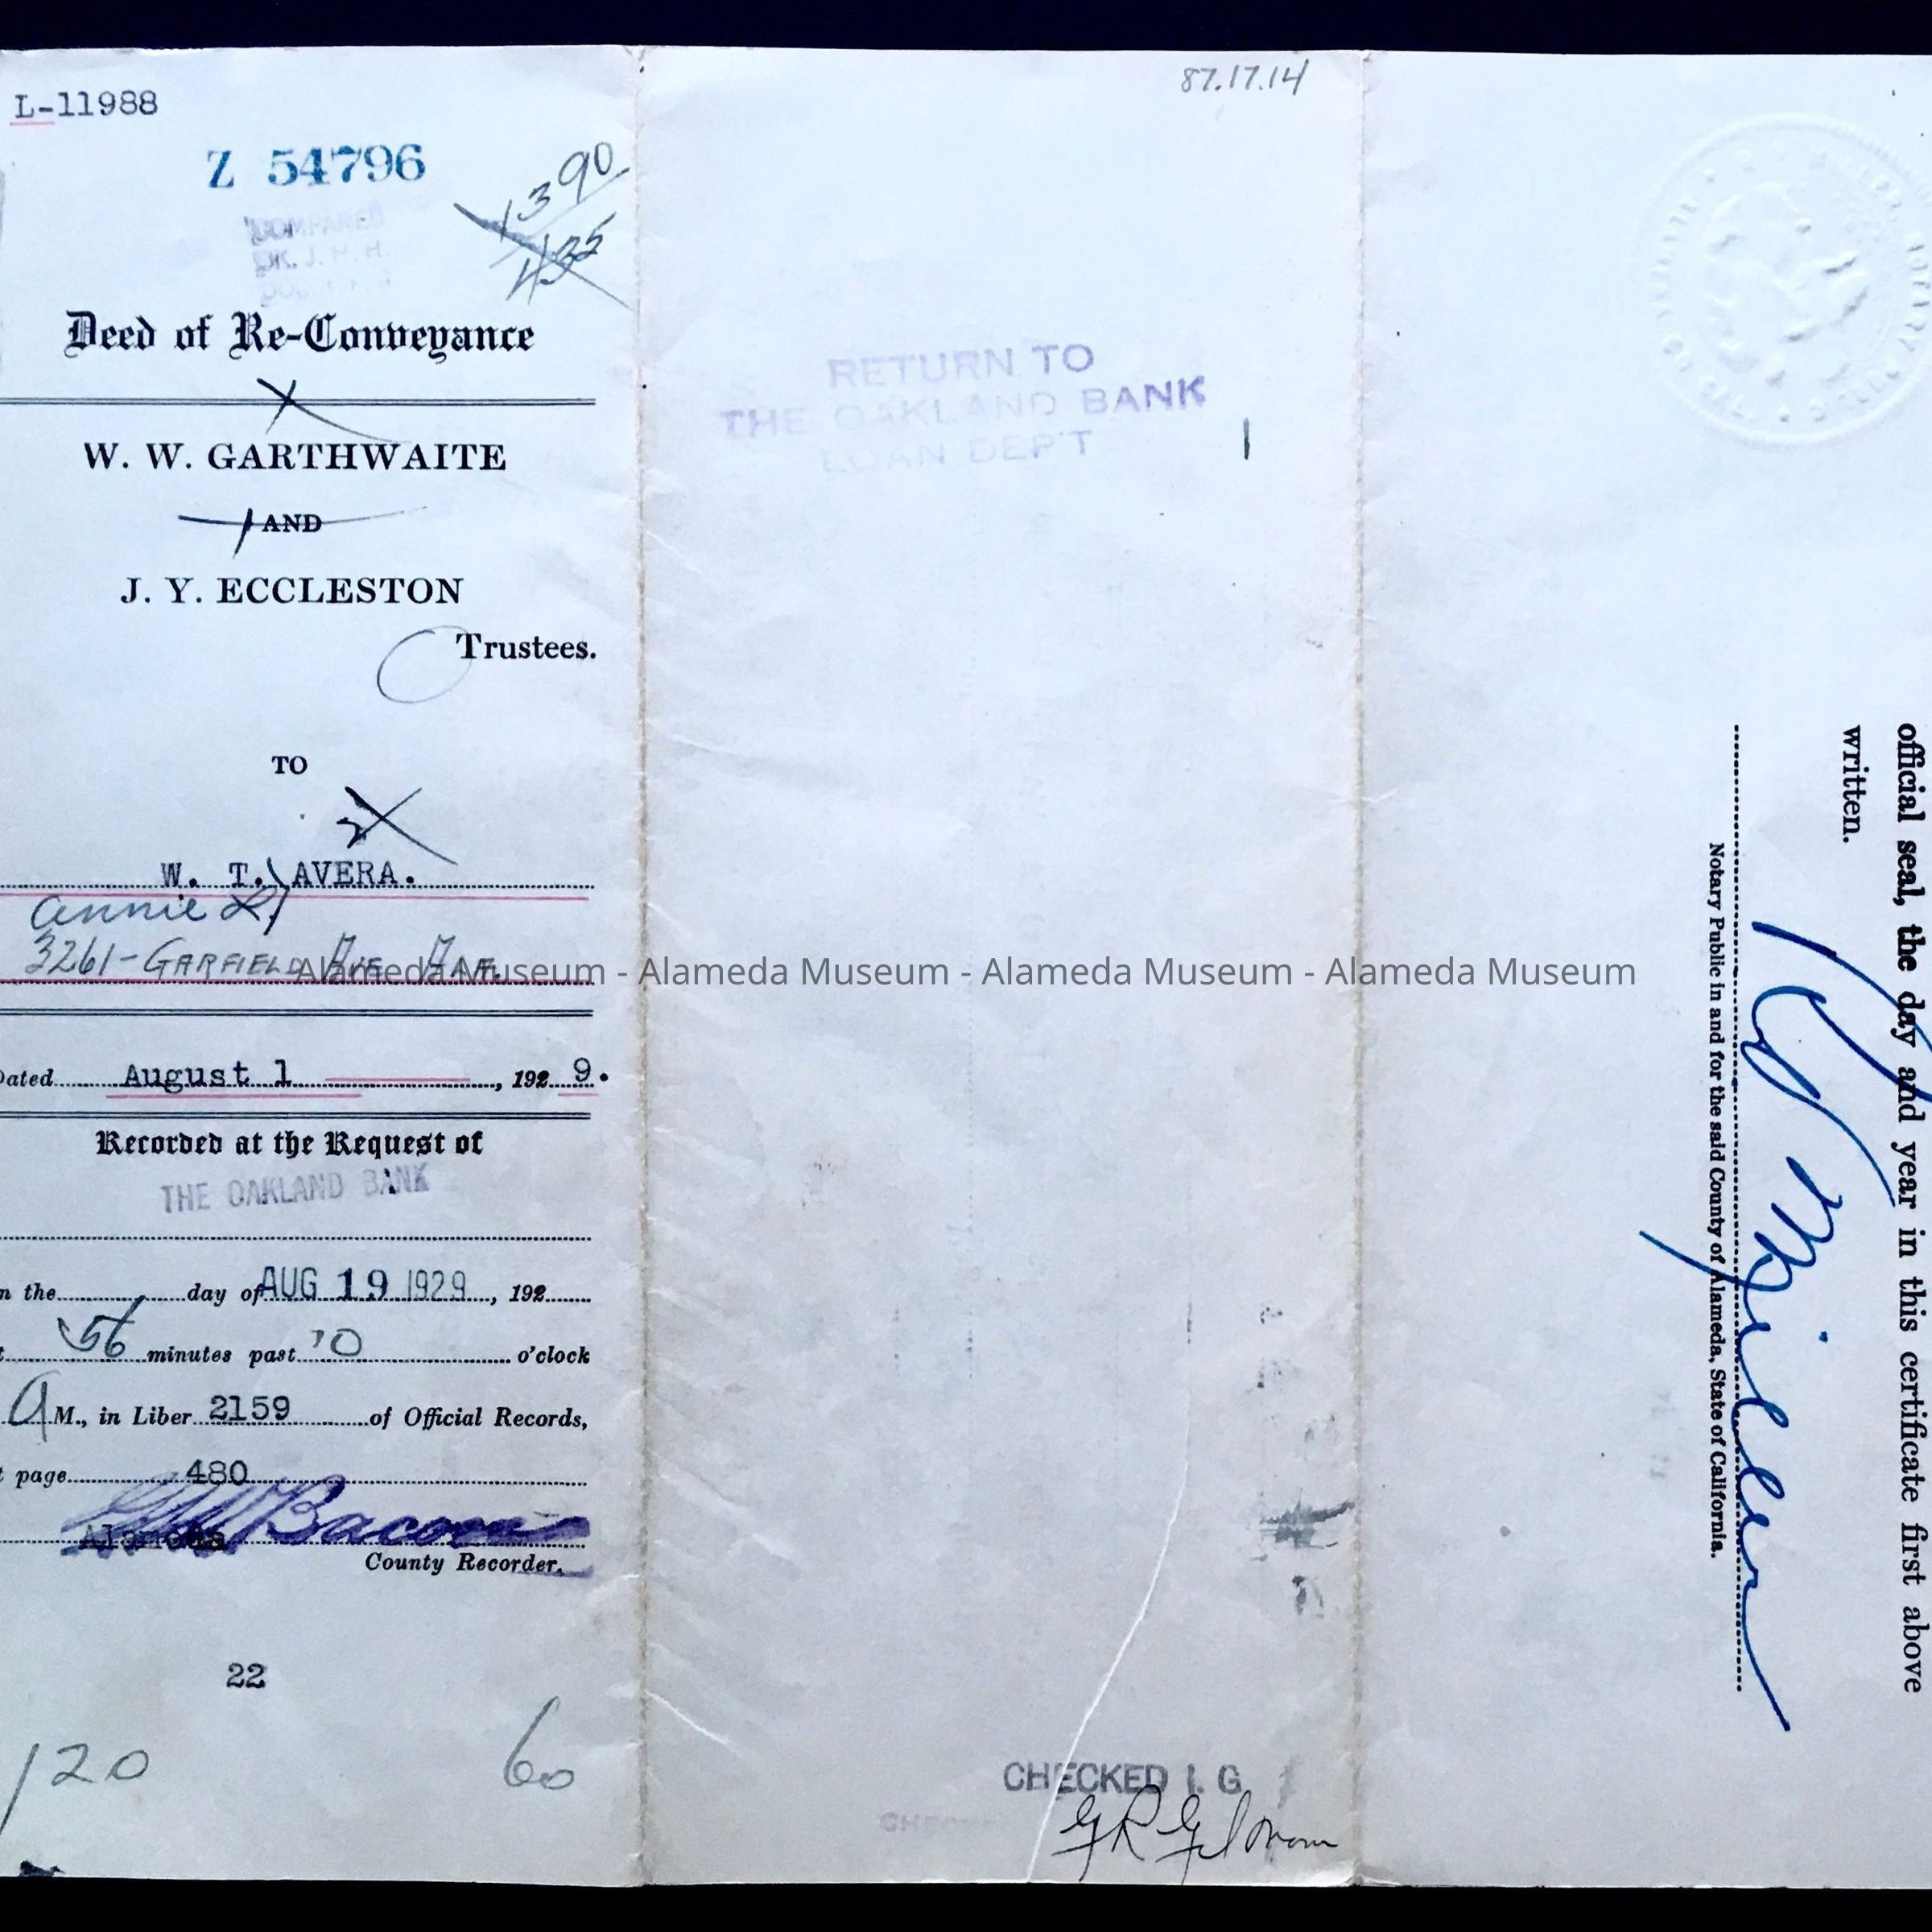 L-11988
Z 54796
1390
435
COMPARED
Deed of Re-Conveyance
W. W. GARTHWAITE
AND
J. Y. ECCLESTON
Trustees.
TO
2
W. T. AVERA.
Annie L.
3261-GARFIELD AVE ALA.
Dated August 1, 1929.
Recorded at the Request of
THE OAKLAND BANK
n the day of AUG 19 1929, 192
56 minutes past 10 o'clock
A M., in Liber 2159 of Official Records,
t page 480
Bacon
Alameda
County Recorder.
22
120 60
87.17.14
RETURN TO
THE OAKLAND BANK
LOAN DEP'T
Alameda Museum - Alameda Museum - Alameda Museum - Alameda Museum
CHECKED I. G.
official seal, the day and year in this certificate first above
written.
Notary Public in and for the said County of Alameda, State of California.